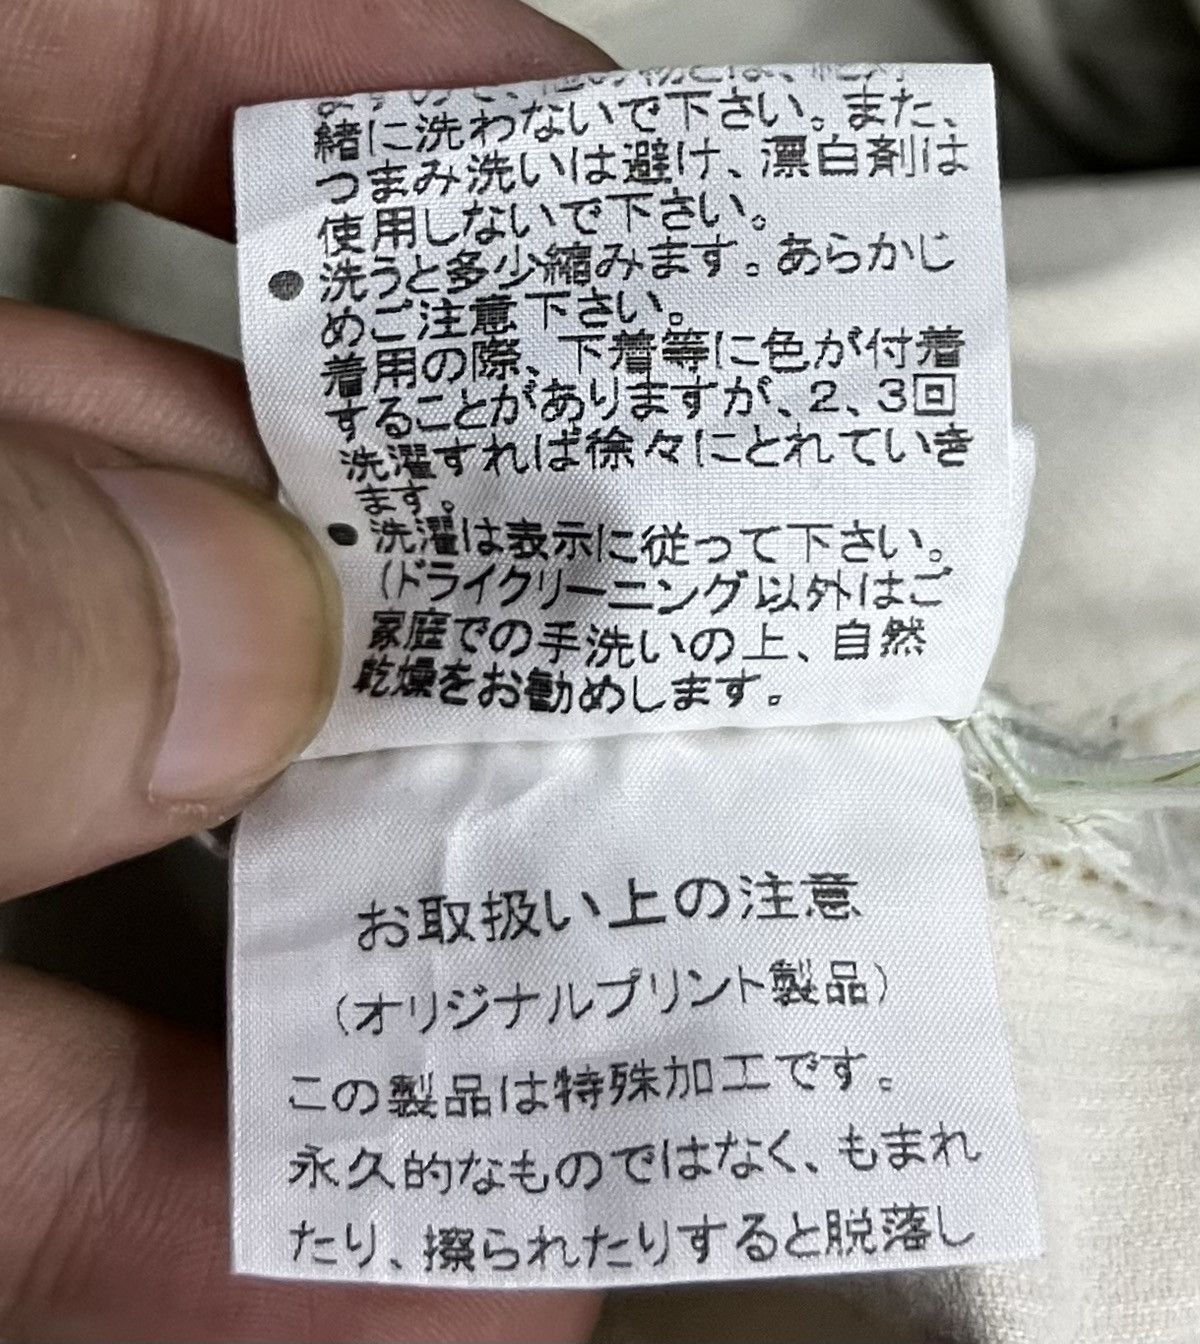 ますので、他の物とは、絶対
緒に洗わないで下さい。また、
つまみ洗いは避け、漂白剤は
使用しないで下さい。
●洗うと多少縮みます。あらかじ
めご注意下さい。
着用の際、下着等に色が付着
することがありますが、2、3回
洗濯すれば徐々にとれていき
ます。
●洗濯は表示に従って下さい。
(ドライクリーニング以外はご
家庭での手洗いの上、自然
乾燥をお勧めします。
お取扱い上の注意
(オリジナルプリント製品)
この製品は特殊加工です。
永久的なものではなく、もまれ
たり、擦られたりすると脱落し